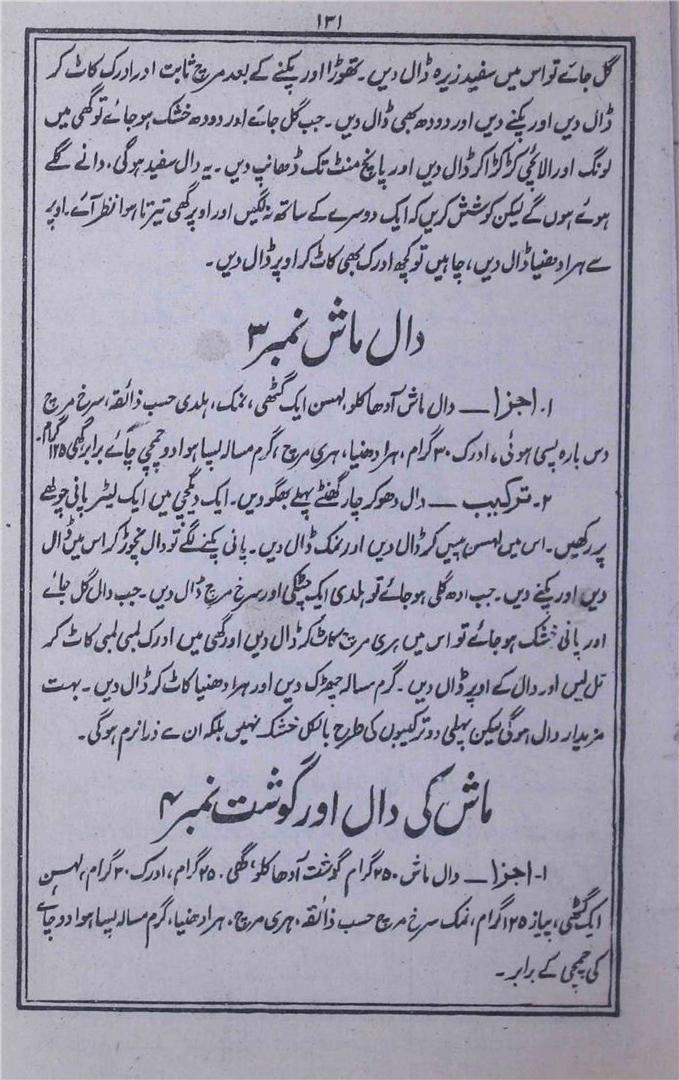 ۱۳۱
گل جائے تو اس میں سفید زیرہ ڈال دیں۔ تھوڑا اور پکنے کے بعد مرچ ثابت اور ادرک کاٹ کر
ڈال دیں اور پکنے دیں اور دودھ بھی ڈال دیں۔ جب گل جائے اور دودھ خشک ہو جائے تو گھی میں
لونگ اور الائچی کڑکڑا کر ڈال دیں اور پانچ منٹ تک ڈھانپ دیں۔ یہ دال سفید ہوگی، دانے گلے
ہوئے ہوں گے لیکن کوشش کریں کہ ایک دوسرے کے ساتھ نہ لگیں اور اوپر گھی تیرتا ہوا نظر آئے۔ اوپر
سے ہرا دھنیا ڈال دیں، چاہیں تو کچھ ادرک بھی کاٹ کر اوپر ڈال دیں۔
دال ماش نمبر ۳
۱۔ اجزا ــ دال ماش آدھا کلو، لہسن ایک گٹھی، نمک، ہلدی حسب ذائقہ، سرخ مرچ
دس بارہ پسی ہوئی، ادرک ۳۰ گرام، ہرا دھنیا، ہری مرچ، گرم مسالہ پسا ہوا دو چمچی چائے برابر، گھی ۱۲۵ گرام۔
۲۔ ترکیب ــ دال دھو کر چار گھنٹے پہلے بھگو دیں۔ ایک دیگچی میں ایک لیٹر پانی چولھے
پر رکھیں۔ اس میں لہسن پیس کر ڈال دیں اور نمک ڈال دیں۔ پانی پکنے لگے تو دال نچوڑ کر اس میں ڈال
دیں اور پکنے دیں۔ جب ادھ گلی ہو جائے تو ہلدی ایک چٹکی اور سرخ مرچ ڈال دیں۔ جب دال گل جائے
اور پانی خشک ہو جائے تو اس میں ہری مرچ کاٹ کر ڈال دیں اور گھی میں ادرک لمبی لمبی کاٹ کر
تل لیں اور دال کے اوپر ڈال دیں۔ گرم مسالہ چھڑک دیں اور ہرا دھنیا کاٹ کر ڈال دیں۔ بہت
مزیدار دال ہوگی لیکن پہلی دو ترکیبوں کی طرح بالکل خشک نہیں بلکہ ان سے ذرا نرم ہوگی۔
ماش کی دال اور گوشت نمبر ۴
۱۔ اجزا ــ دال ماش ۲۵۰ گرام گوشت آدھا کلو، گھی ۲۵۰ گرام، ادرک ۳۰ گرام، لہسن
ایک گٹھی، پیاز ۱۲۵ گرام، نمک سرخ مرچ حسب ذائقہ، ہری مرچ، ہرا دھنیا، گرم مسالہ پسا ہوا دو چائے
کی چمچی کے برابر۔